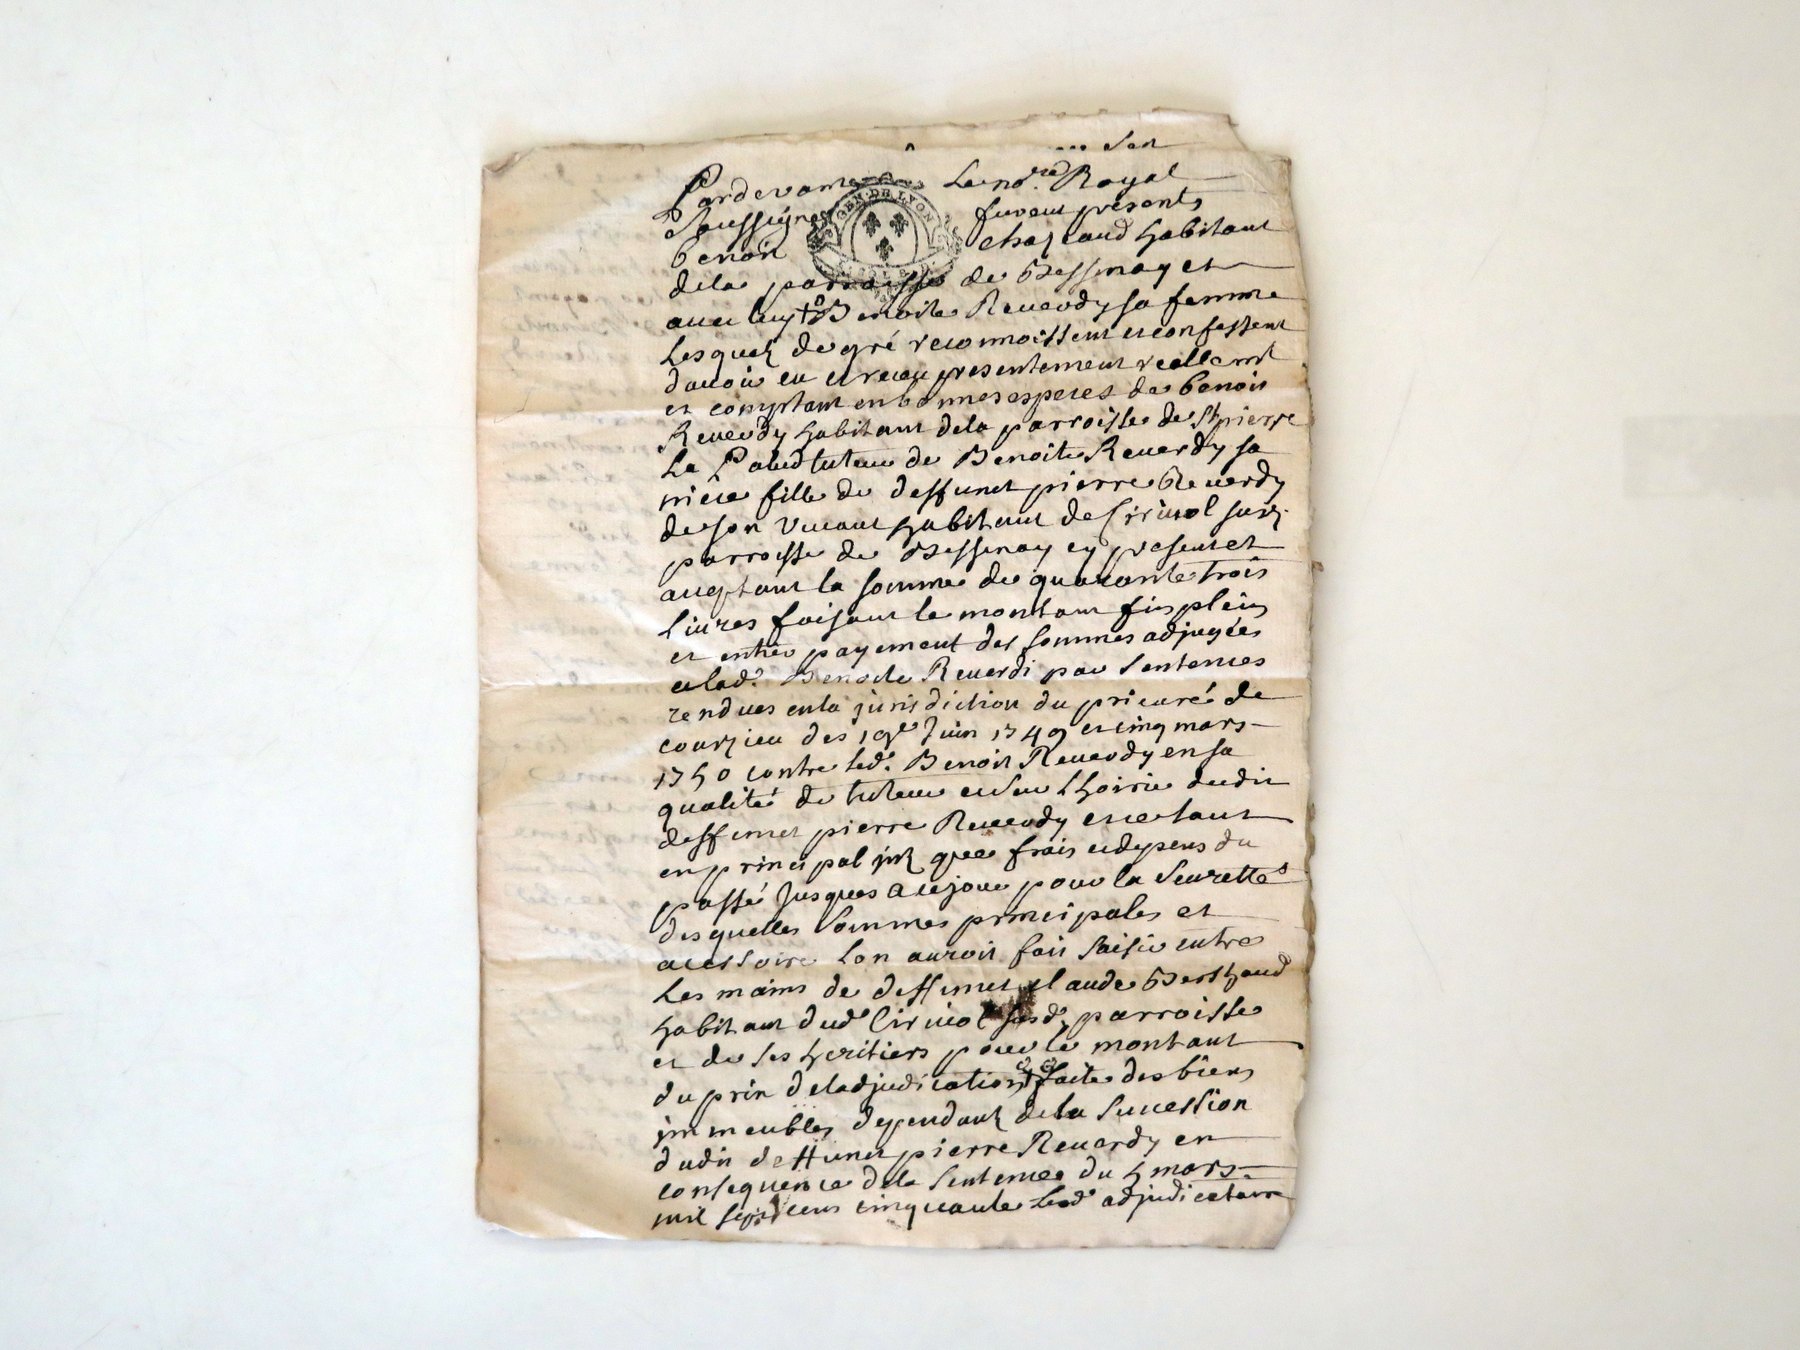 GEN · DE · LYON
Pardevant Le no.re Royal
Soussigné furent présents
benoit habitant
dela parroisse de Bessenay et
avec luy Benoite Reverdy sa femme
Lesquelz de gré reconnoissent et confessent
davoir eu et receu presentement reellemt
et comptant en bonnes especes de benoit
Reverdy habitant dela parroisse de St pierre
La Palud tuteur de Benoite Reverdy sa
niéce fille de deffunct pierre Reverdy
de son vivant habitant de
parroisse de Bessenay cy present et
aceptant la somme de quarante trois
Livres faisant le montant fin plein
et entier payement des sommes adjugées
a lad.e Benoite Reverdi par Sentences
rendues en la jurisdiction du prieuré de
courzieu des 19e Juin 1749 et cinq mars
1750 contre led.t Benoit Reverdy en sa
qualité de tuteur et sur Lhoirie dudit
deffunct pierre Reverdy et ce tant
en principal frais et depens du
passé Jusques a ce jour pour la Seurette
desquelles Sommes principales et
acessoire Lon auroit fait Saisie entre
Les mains de deffunct claude Berthaud
habitant dud. parroisse
et de Ses heritiers pour le montant
du prix deladjudication faite des biens
immeubles dependant dela Succession
dudit deffunct pierre Reverdy en
consequence dela Sentence du 5 mars
mil sept cens cinquante Led. adjudicataire